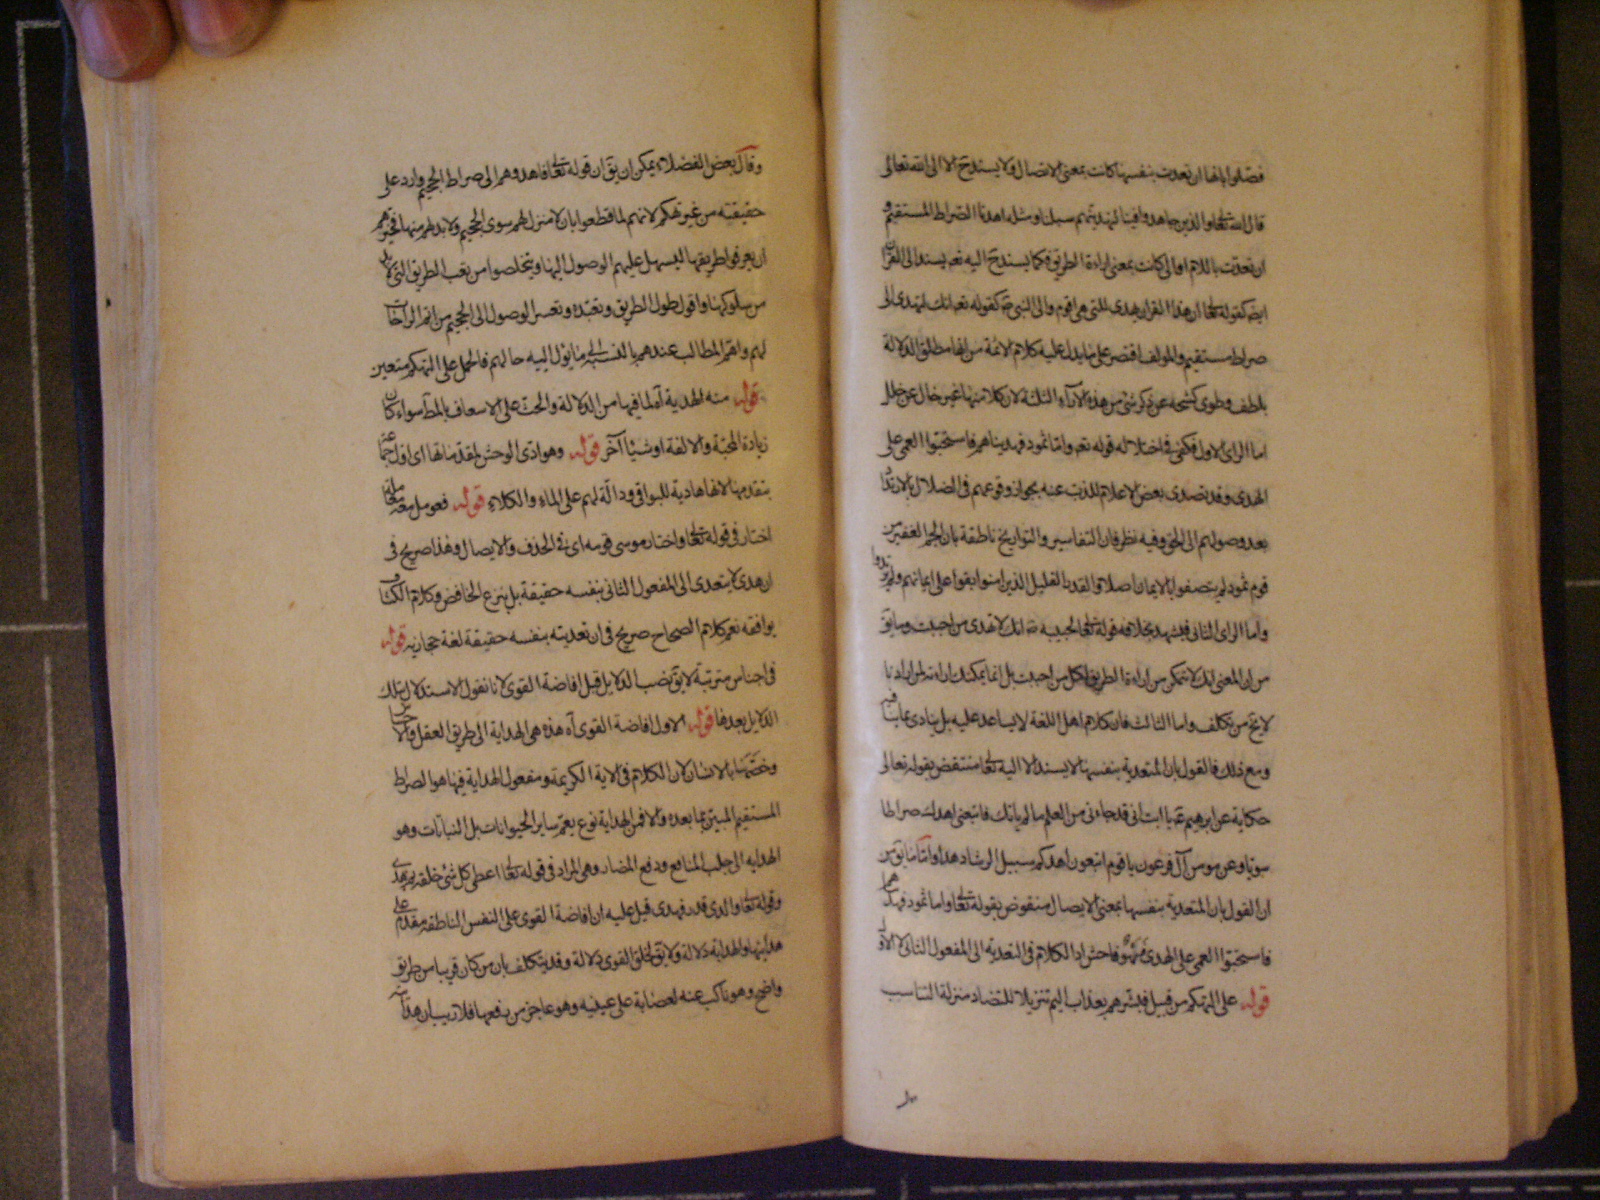 فصّلوا بانها ان تعدت بنفسها كانت بمعنى الايصال ولا يسند ح الا الى الله تعالى
قال الله تعالى والذين جاهدوا فينا لنهدينهم سبلنا ومثله اهدنا الصراط المستقيم و
ان تعدت باللام او الى كانت بمعنى اراءة الطريق فكما يسند ح اليه تعم يسند الى القران
ايضا كقوله تعالى ان هذا القران يهدى للتى هى اقوم والى النبى ص كقوله تعم انك لتهدى الى
صراط مستقيم والمؤلف اقتصر على ما يدل عليه كلام الائمة من انها مطلق الدلالة
بلطف وطوى كشحه عن ذكر شئ من هذه الآراء الثلثة لان كلا منها غير خال عن خلل
اما الراى الاول فكفى فى اختلاله قوله تعم واما ثمود فهديناهم فاستحبوا العمى على
الهدى وقد تصدى بعض الاعلام للذب عنه بجواز وقوعهم فى الضلال بالارتداد
بعد وصولهم الى الحق وفيه نظر فان التفاسير والتواريخ ناطقة بان الجم الغفير من
قوم ثمود لم يتصفوا بالايمان اصلا والقدر القليل الذين امنوا بقوا على ايمانهم ولم يرتدوا
واما الراى الثانى فلشهد بخلافه قوله تعالى لحبيبه ص انك لا تهدى من احببت وما يق
من ان المعنى انك لا تتمكن من اراءة الطريق لكل من احببت بل انما يمكنك اراءته لمن اردنا
لا يخ من تكلف واما الثالث فان كلام اهل اللغة لا يساعد عليه بل ينادى بما ينافيه
ومع ذلك فالقول بان المتعدية بنفسها لا يسند الا اليه تعالى منتقض بقوله تعالى
حكاية عن ابرهيم ع يا ابت انى قد جاءنى من العلم ما لم ياتك فاتبعنى اهدك صراطا
سويا وعن مومن آل فرعون يا قوم اتبعون اهدكم سبيل الرشاد هذا واما ما يق من
ان القول بان المتعدية بنفسها بمعنى الايصال منقوض بقوله تعالى واما ثمود فهديناهم
فاستحبوا العمى على الهدى فسهو فاحش اذ الكلام فى التعدية الى المفعول الثانى لا الاول
قوله على التهكم من قبيل فبشرهم بعذاب اليم تنزيلا للتضاد منزلة التناسب
وقال بعض الفضلاء يمكن ان يق ان قوله تعالى فاهدوهم الى صراط الجحيم وارد على
حقيقته من غير تهكم لانهم لما قطعوا بان لا منزل لهم سوى الجحيم ولا بد لهم منها
ان يعرفوا طريقها ليسهل عليهم الوصول اليها ويتخلصوا من تعب الطريق التى لابد
من سلوكها واقول طول الطريق وتعبه وتعسر الوصول الى الجحيم من اتم الراحات
لهم واهم المطالب عندهم بالنسبة الى ما يؤل اليه حالهم فالحمل على التهكم متعين
قوله منه الهدية آه لما فيها من الدلالة والحث على الاسعاف بالمط سواء كان
زيادة المحبة والالفة او شيئا آخر قوله وهوادى الوحش لمقدماتها اى اول
بتقدمها لانها هادية للبواقى ودالة لهم على الماء والكلاء قوله فعومل معه معاملة
اختار فى قوله تعالى واختار موسى قومه اى فى الحذف والايصال وهذا صريح فى
ان هدى لا يتعدى الى المفعول الثانى بنفسه حقيقة بل بنزع الخافض وكلام الكشاف
يوافقه نعم كلام الصحاح صريح فى ان تعديته بنفسه حقيقة لغة حجازية قوله
فى اجناس مترتبة لا يق نصب الدلايل قبل افاضة القوى لانا نقول الاستدلال بتلك
الدلايل بعدها قوله الاول افاضة القوى آه هذه هى الهداية الى طريق العقل والاحساس
وخصها بالانسان لان الكلام فى الاية الكريمة ومفعول الهداية فيها هو الصراط
المستقيم المبين بما بعده والا فمن الهداية نوع يعم ساير الحيوانات بل النباتات وهو
الهداية الى جلب المنافع ودفع المضار وهى المراد فى قوله تعالى اعطى كل شئ خلقه ثم هدى
وقوله تعالى والذى قدر فهدى قيل عليه ان افاضة القوى على النفس الناطقة مقدم على
هدايتها والهداية دلالة ولا يق لخلق القوى دلالة وقد يتكلف بان من كان قريبا من طريق
واضح وهو ناكب عنه لعصابة على عينيه وهو عاجز من رفعها فلا ريب ان